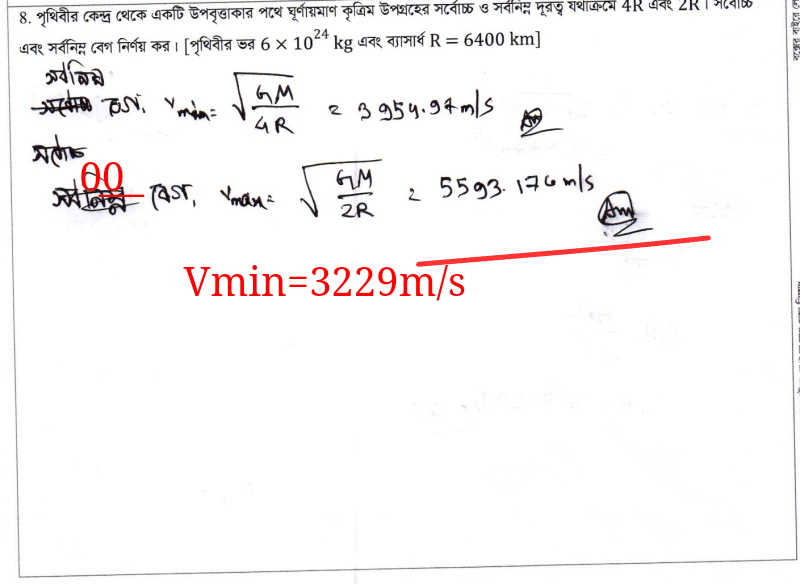 8. পৃথিবীর কেন্দ্র থেকে একটি উপবৃত্তাকার পথে ঘূর্ণায়মাণ কৃত্রিম উপগ্রহের সর্বোচ্চ ও সর্বনিম্ন দূরত্ব যথাক্রমে 4R এবং 2R। সর্বোচ্চ
এবং সর্বনিম্ন বেগ নির্ণয় কর। [পৃথিবীর ভর 6 × 10^24 kg এবং ব্যাসার্ধ R = 6400 km]
সর্বনিম্ন
বেগ, Vmin = √GM/4R = 3954.97 m/s Ans
সর্বোচ্চ
00
সর্বনিম্ন বেগ, Vmax = √GM/2R = 5593.176 m/s Ans
Vmin=3229m/s